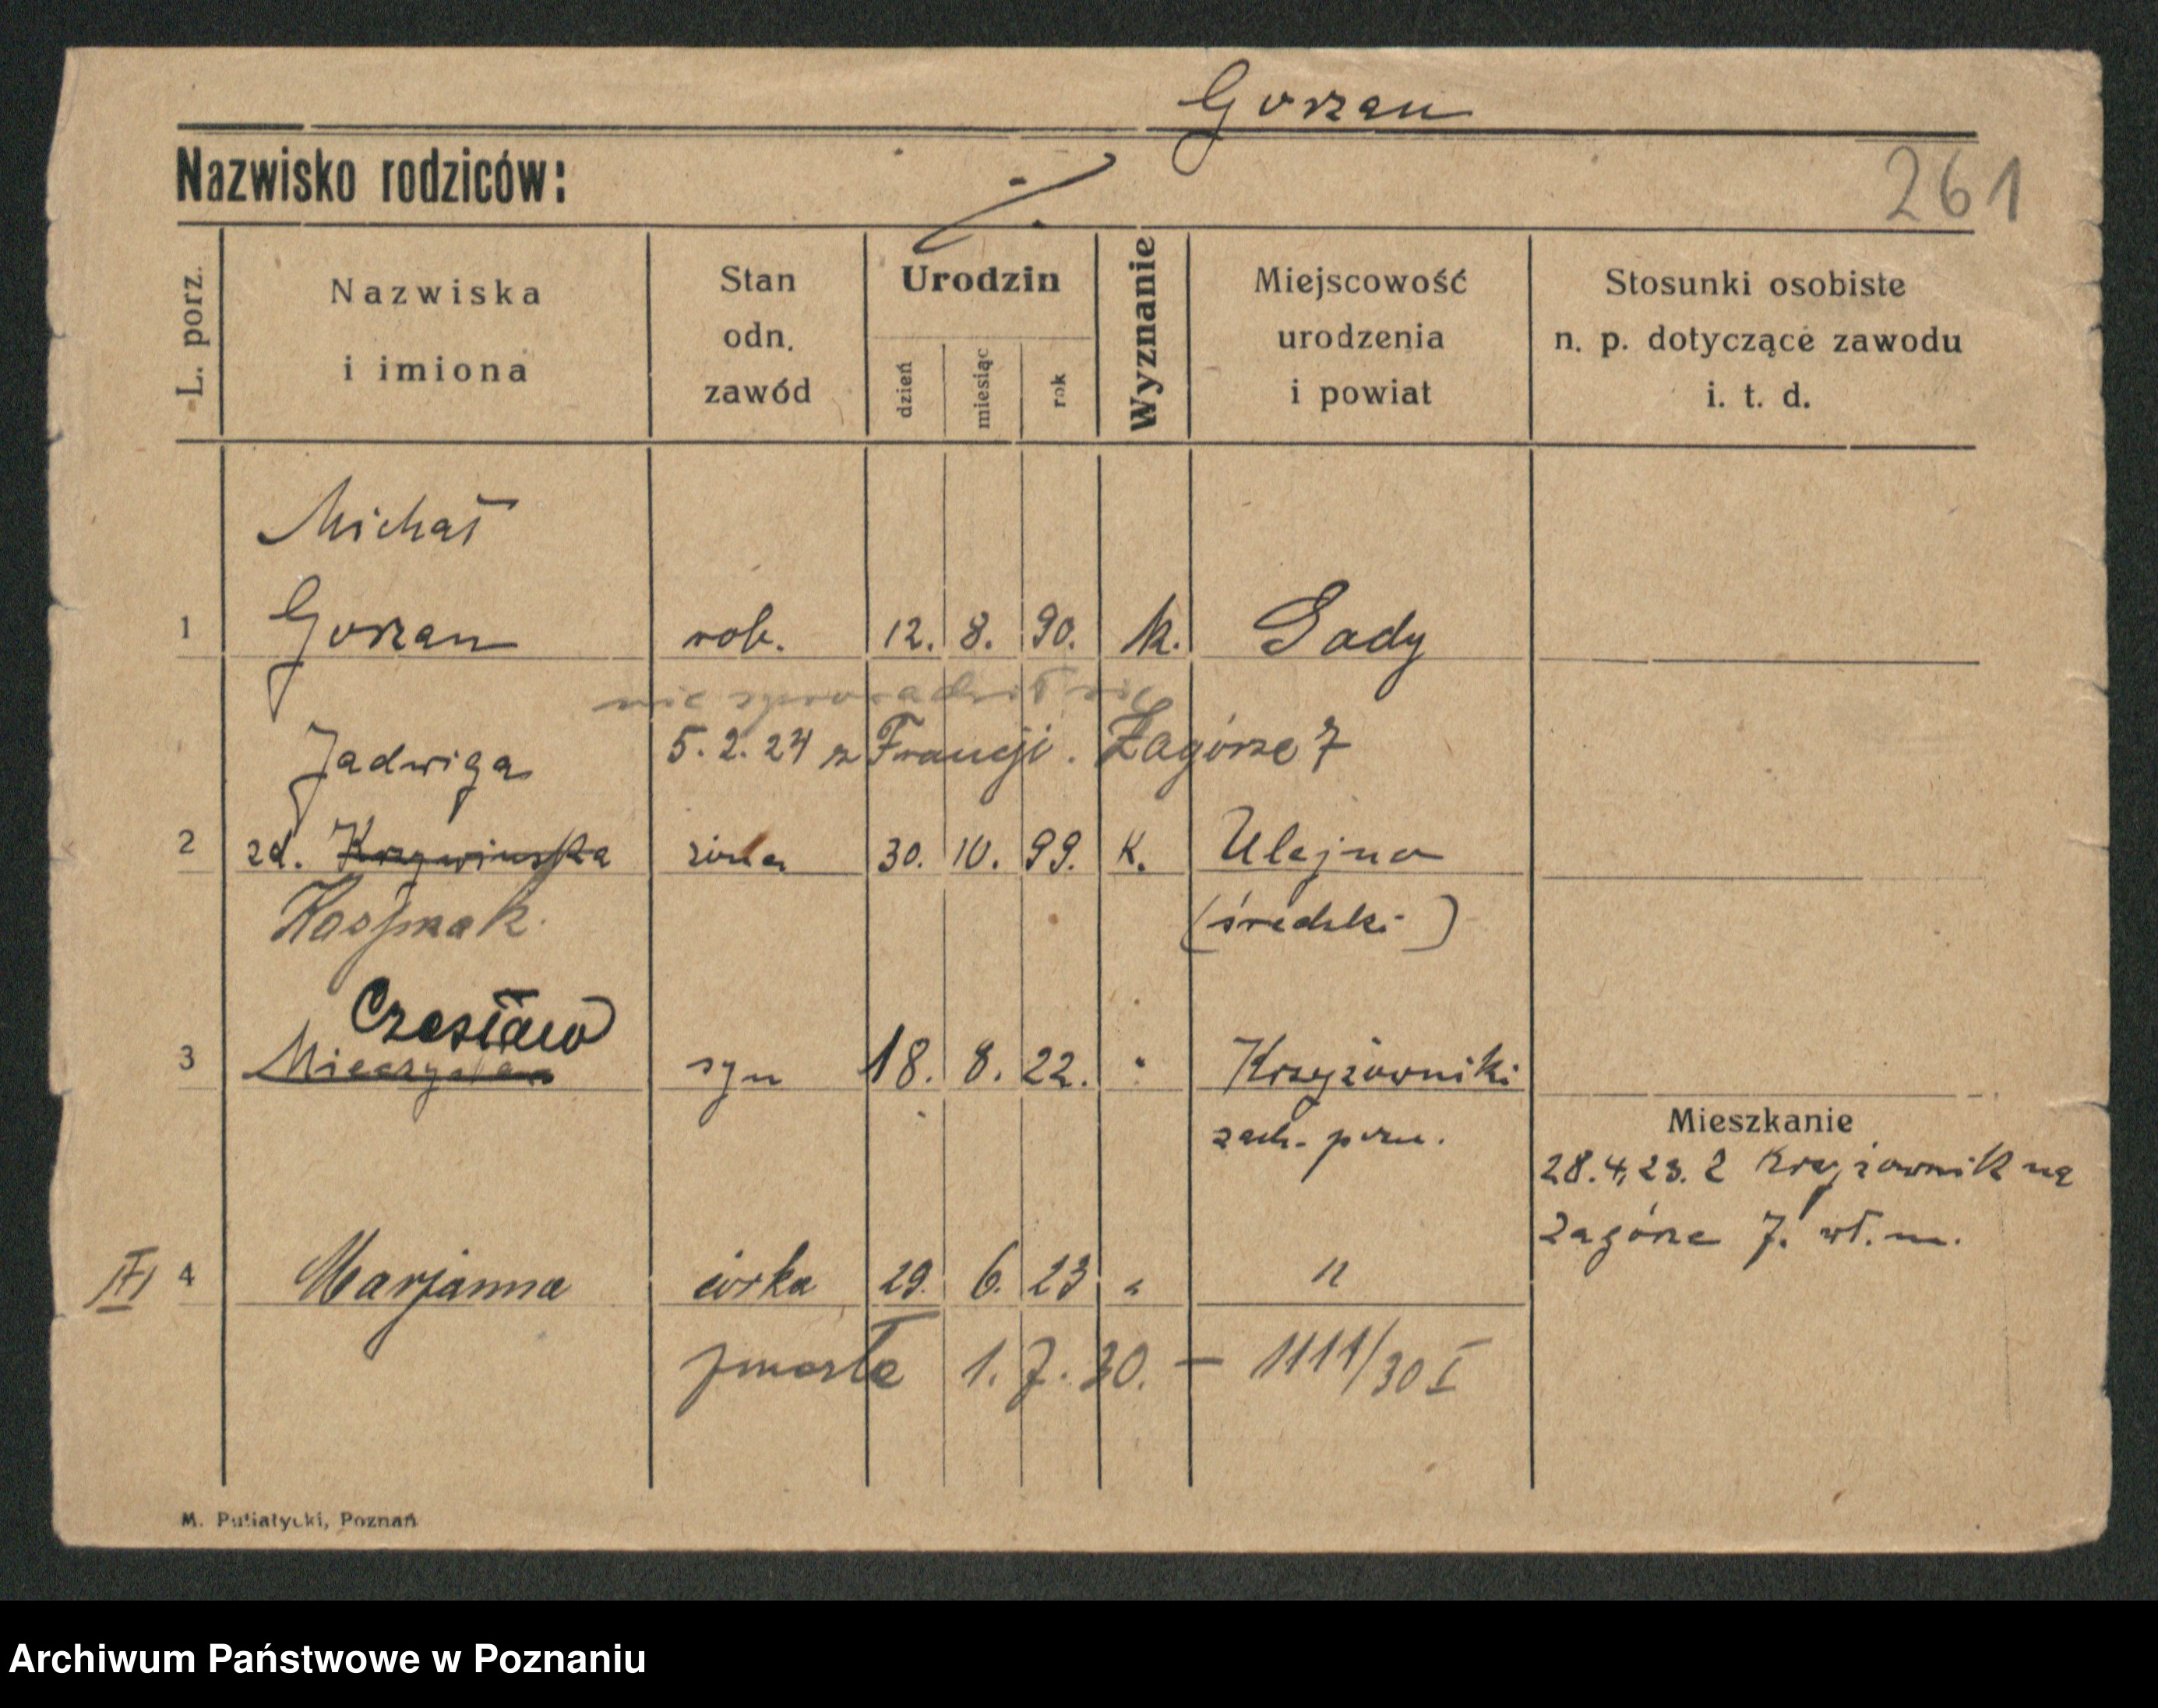 Gorzan
Nazwisko rodziców:
261
L. porz.
Nazwiska
i imiona
Stan
odn.
zawód
Urodzin
dzień
miesiąc
rok
Wyznanie
Miejscowość
urodzenia
i powiat
Stosunki osobiste
n. p. dotyczące zawodu
i. t. d.
Michał
1 Gorzan rob. 12. 8. 90. k. Gady
nie sprowadził się
Jadwiga 5.2.24 z Francji. Zagórze 7
2 zd. Krzywinska żona 30. 10. 99. k. Ulejno
(średzki)
Czesław
3 Mieczysław syn 18. 8. 22. " Krzyżowniki
zach. pozn.
Mieszkanie
28.4.23. z Krzyżownik na
Zagórze 7. wł. m.
III 4 Marjanna córka 29. 6. 23 " "
zmarła 1.7.30. – 1111/30 I
M. Putiatycki, Poznań
Archiwum Państwowe w Poznaniu